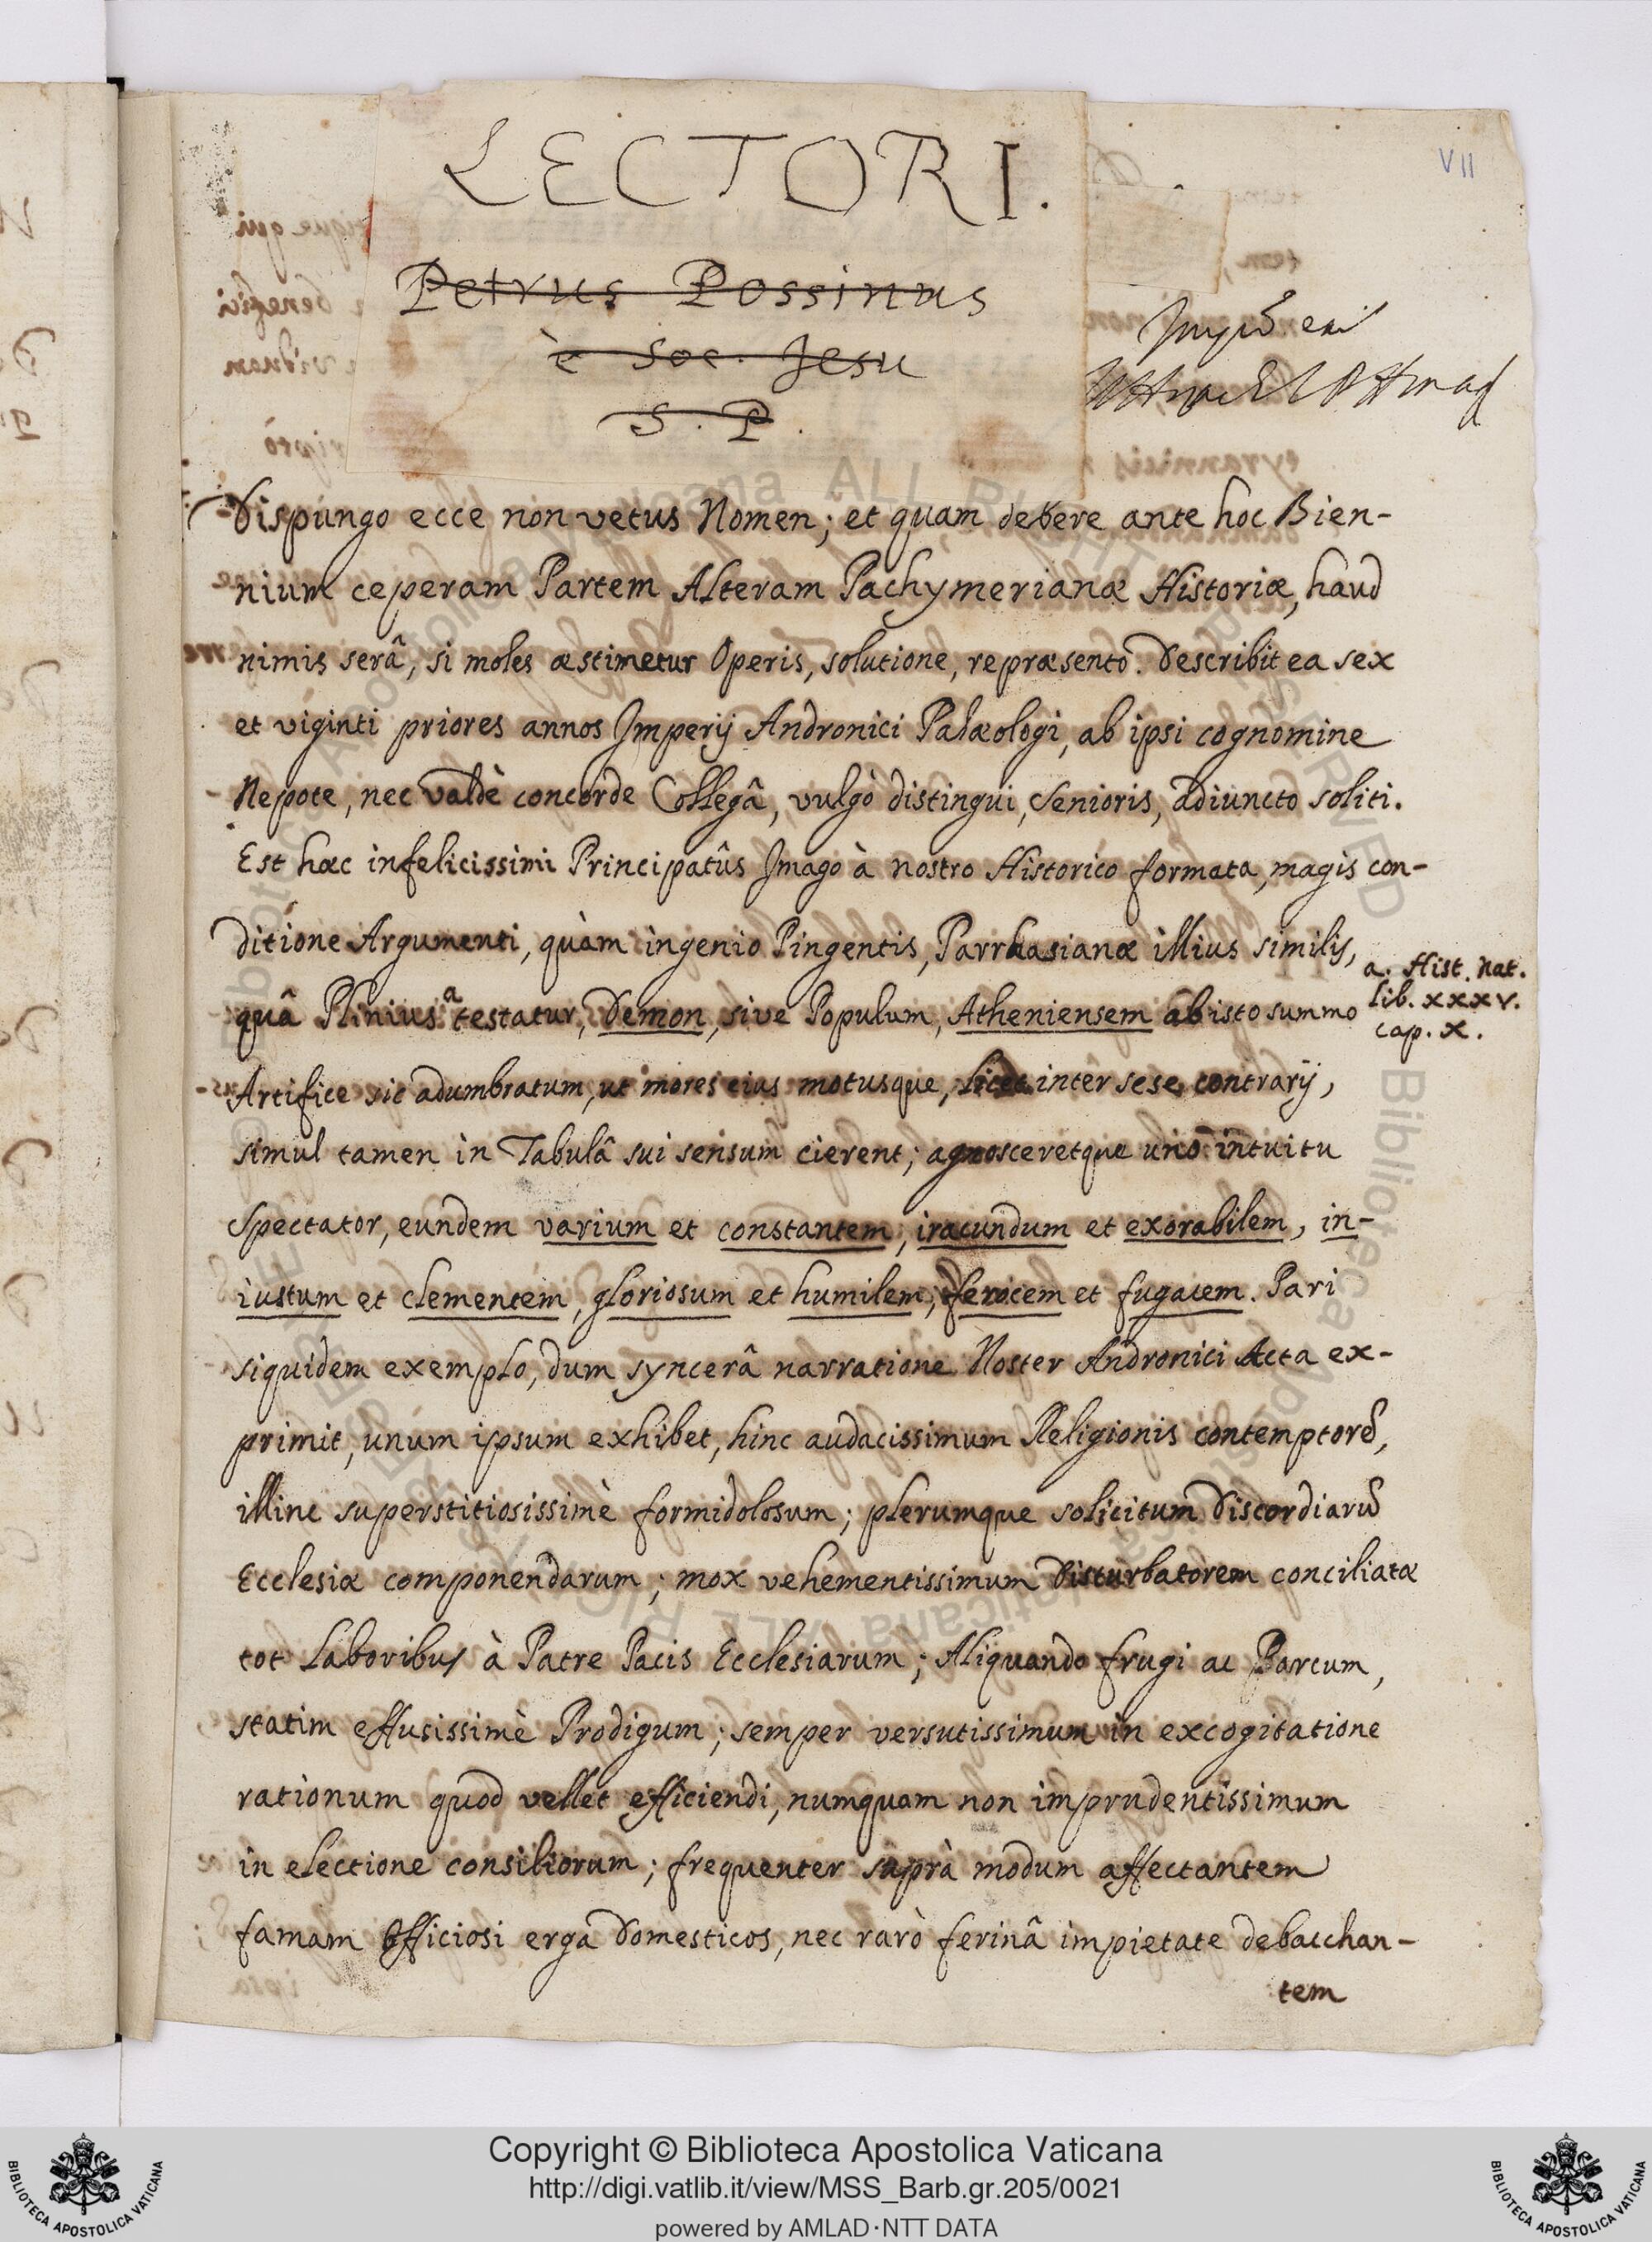 VII
LECTORI.
Petrus Possinus
è Soc. Jesu
S. P.
Dispungo ecce non vetus Nomen; et quam debere ante hoc Bien-
nium ceperam Partem Alteram Pachymerianæ Historiæ, haud
nimis serâ, si moles æstimetur Operis, solutione, repræsento. Describit ea sex
et viginti priores annos Imperij Andronici Palæologi, ab ipsi cognomine
Nepote, nec valdè concorde Collegâ, vulgò distingui, Senioris, adiuncto soliti.
Est hæc infelicissimi Principatûs Imago à nostro Historico formata, magis con-
ditione Argumenti, quàm ingenio Pingentis, Parrhasianæ illius similis,
quâ Plinius a testatur, Demon, sive Populum, Atheniensem ab isto summo
a. Hist. Nat.
lib. xxxv.
cap. x.
Artifice sic adumbratum, ut mores eius motusque, licet inter sese contrarij,
simul tamen in Tabulâ sui sensum cierent; agnosceretque uno intuitu
Spectator, eundem varium et constantem, iracundum et exorabilem, in-
iustum et clementem, gloriosum et humilem, ferocem et fugacem. Pari
siquidem exemplo, dum syncerâ narratione Noster Andronici Acta ex-
primit, unum ipsum exhibet, hinc audacissimum Religionis contemptorē,
illinc superstitiosissimè formidolosum; plerumque solicitum Discordiarū
Ecclesiæ componendarum; mox vehementissimum Disturbatorem conciliatæ
tot Laboribus à Patre Pacis Ecclesiarum; Aliquando frugi ac Parcum,
statim effusissimè Prodigum; semper versutissimum in excogitatione
rationum quod vellet efficiendi, numquam non imprudentissimum
in electione consiliorum; frequenter suprà modum affectantem
famam Officiosi erga Domesticos, nec rarò ferinâ impietate debacchan-
tem
Copyright © Biblioteca Apostolica Vaticana
http://digi.vatlib.it/view/MSS_Barb.gr.205/0021
powered by AMLAD·NTT DATA
BIBLIOTECA APOSTOLICA VATICANA
BIBLIOTECA APOSTOLICA VATICANA